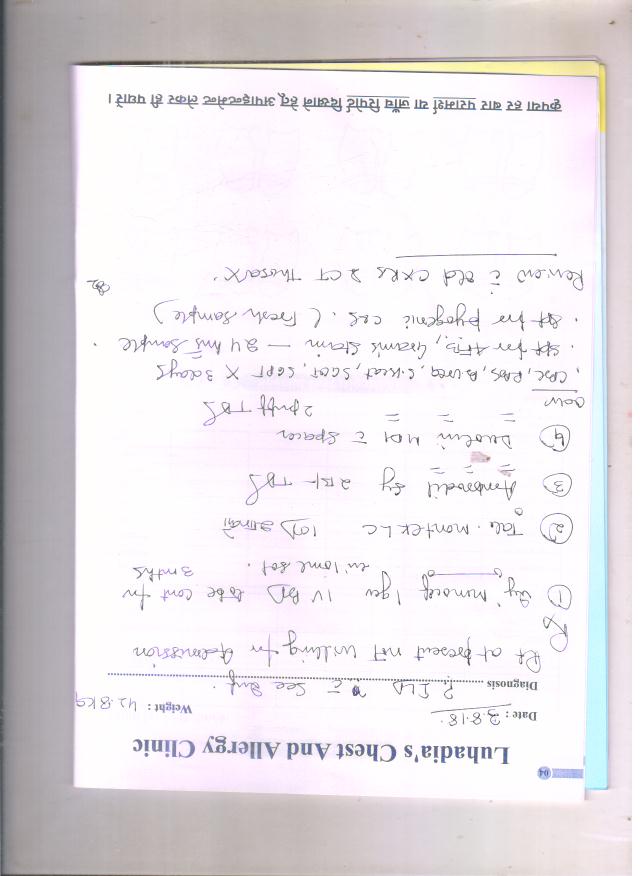 04
Luhadia's Chest And Allergy Clinic
Date : 3.8.18. Weight : 42.8 kg
Diagnosis ? ILD c̄ sec Inf.
Pt at present not willing for Admission
Rx
1 Inj Monocef 1gm IV BD to be cont for
in some sol. 3 mths
2 Tab. Montek LC 1 OD
3 Ambrodil Sy 2 TDS
4 Duolin MDI c̄ Spacer
2 puff TDS
Adv
CBC, RBS, B.urea, S.creat, SGOT, SGPT X 3 days
. for AFB, Gram's Stain – 24 hrs Sample
. for pyogenic C&S. (Fresh Sample)
Review c̄ old CXRs & CT Thorax.
कृपया हर बार परामर्श या जाँच रिपोर्ट दिखाने हेतु अपाइन्टमेन्ट लेकर ही पधारें ।